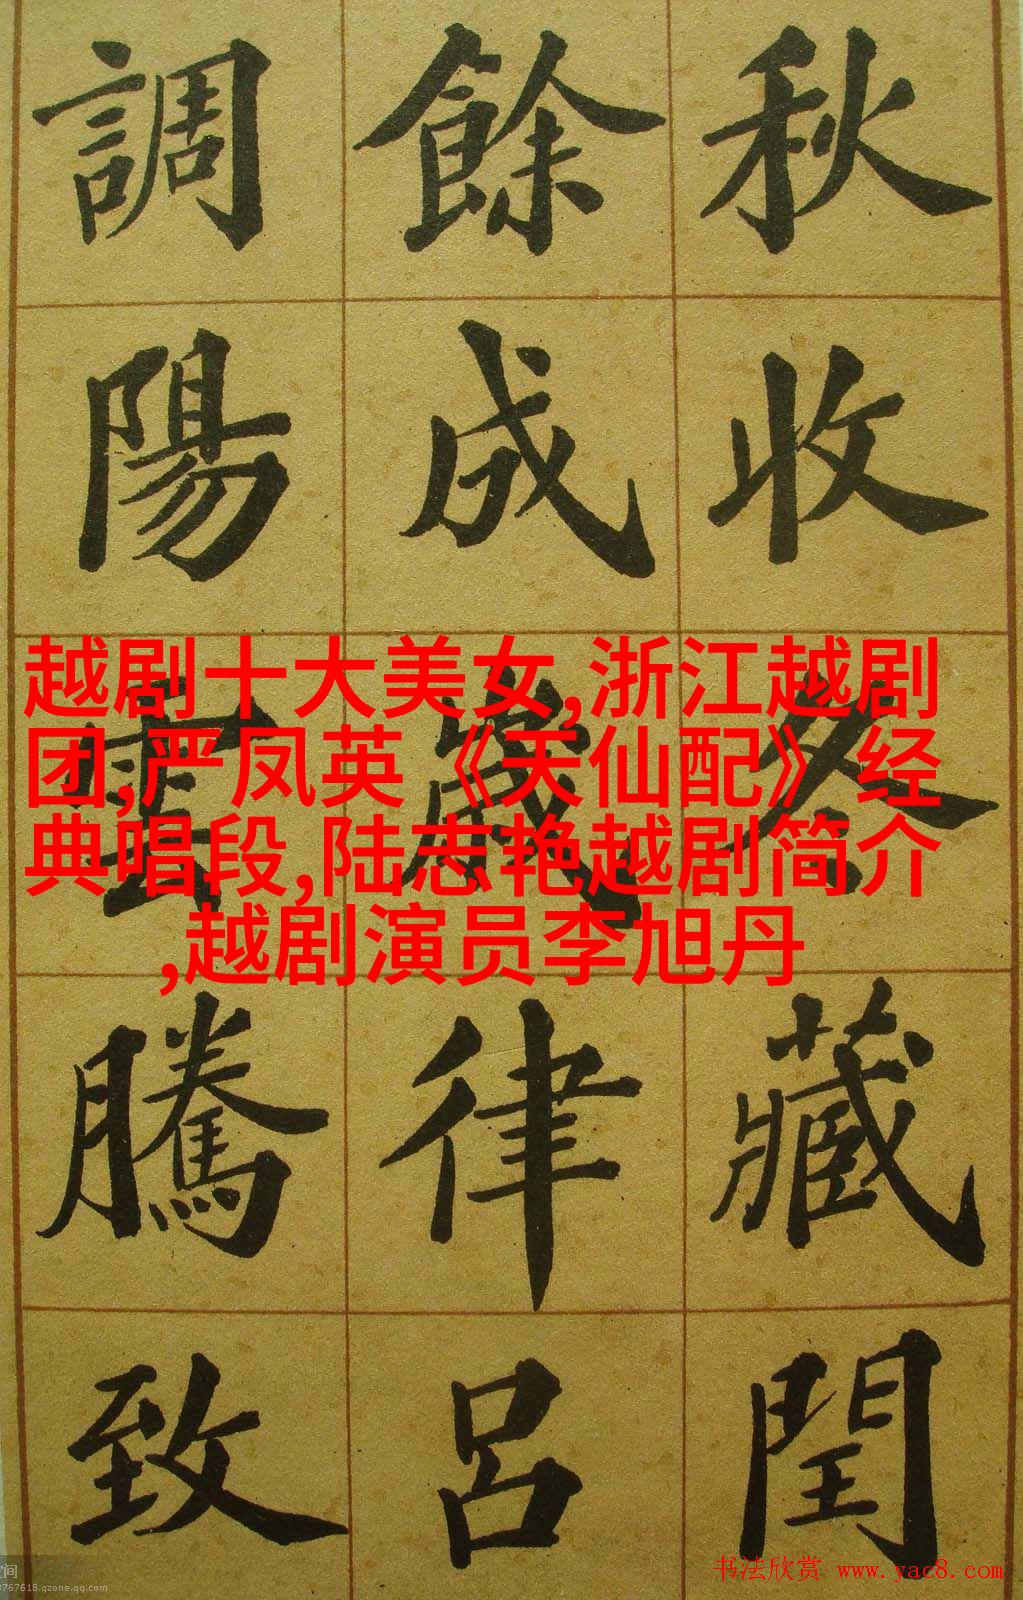 秋收冬藏閏
餘成歲律呂
調陽雲騰致
越剧十大美女,浙江越剧
团,严凤英《天仙配》经
典唱段,陆志艳越剧简介
,越剧演员李旭丹
书法欣赏 www.yac8.com
空间
3767618.qzone.qq.com